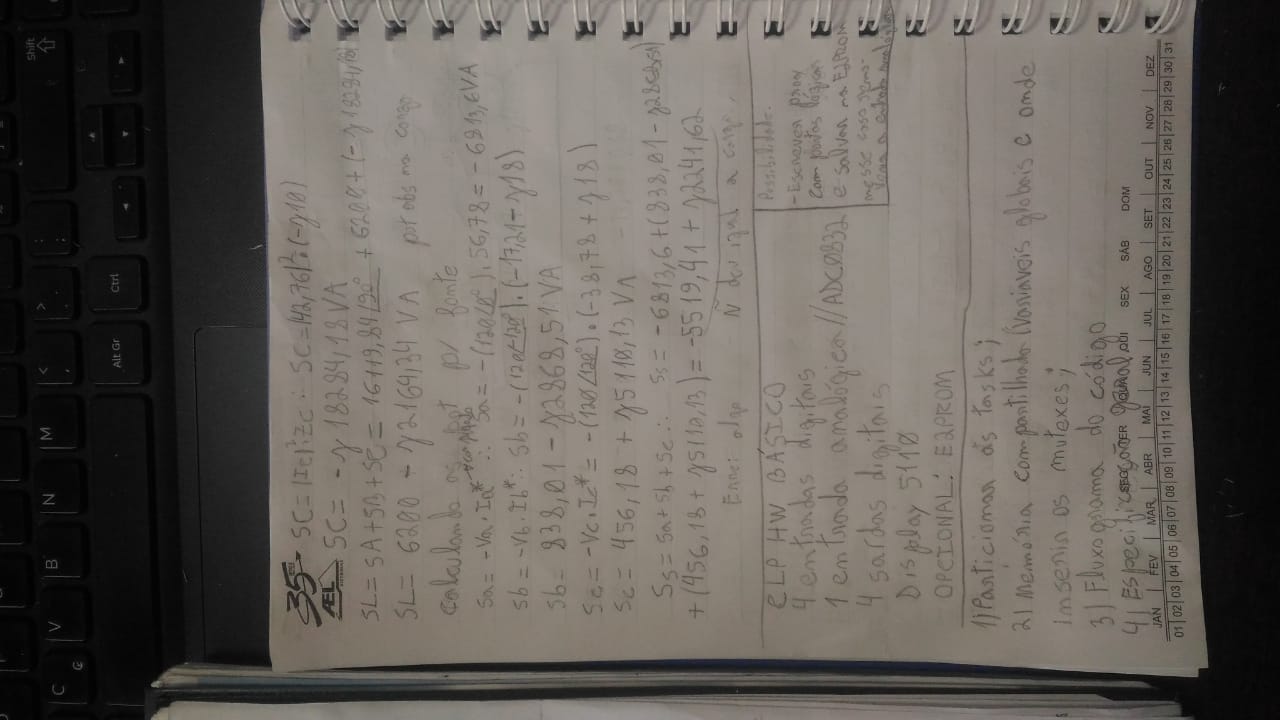 35
ÆL
SC = |Ic|²Zc ∴ SC = |42,76|².(-j10)
SC = -j 18284,18 VA
SL = SA + SB + SC = 16119,84∠90° + 6200 + (-j 18284,18)
SL = 6200 - j2164,34 VA pot abs na carga
Calculando as pot p/ fonte
Sa = -Va.Ia* ∴ Sa = -(120∠0°).56,78 = -6813,6VA
Sb = -Vb.Ib* ∴ Sb = -(120∠-120°).(-17,21 - j18)
Sb = 838,01 - j2868,51 VA
Sc = -Vc.Ic* = -(120∠120°).(-38,78 + j18)
Sc = 456,18 + j5110,13 VA
Ss = Sa + Sb + Sc ∴ Ss = -6813,6 + (838,01 - j2868,51)
+ (456,18 + j5110,13) = -5519,41 + j2241,62
Errei algo Ñ deu igual a carga.
CLP HW BÁSICO
4 entradas digitais
1 entrada analógica // ADC0832
4 saídas digitais
Display 5110
OPCIONAL: E2PROM
Possibilidade:
- Escrever prog
com portas lógicas
e salvar na E2PROM
nesse caso
a entrada analógica
1) Particionar as tasks;
2) Memória compartilhada (Variáveis globais e onde
inserir os mutexes;
3) Fluxograma do código
4) Especificação geral
SEG TER QUA QUI SEX SÁB DOM
JAN FEV MAR ABR MAI JUN JUL AGO SET OUT NOV DEZ
01 02 03 04 05 06 07 08 09 10 11 12 13 14 15 16 17 18 19 20 21 22 23 24 25 26 27 28 29 30 31
Shift
Ctrl
Alt Gr
> .
< ,
: ;
M
N
B
V
C